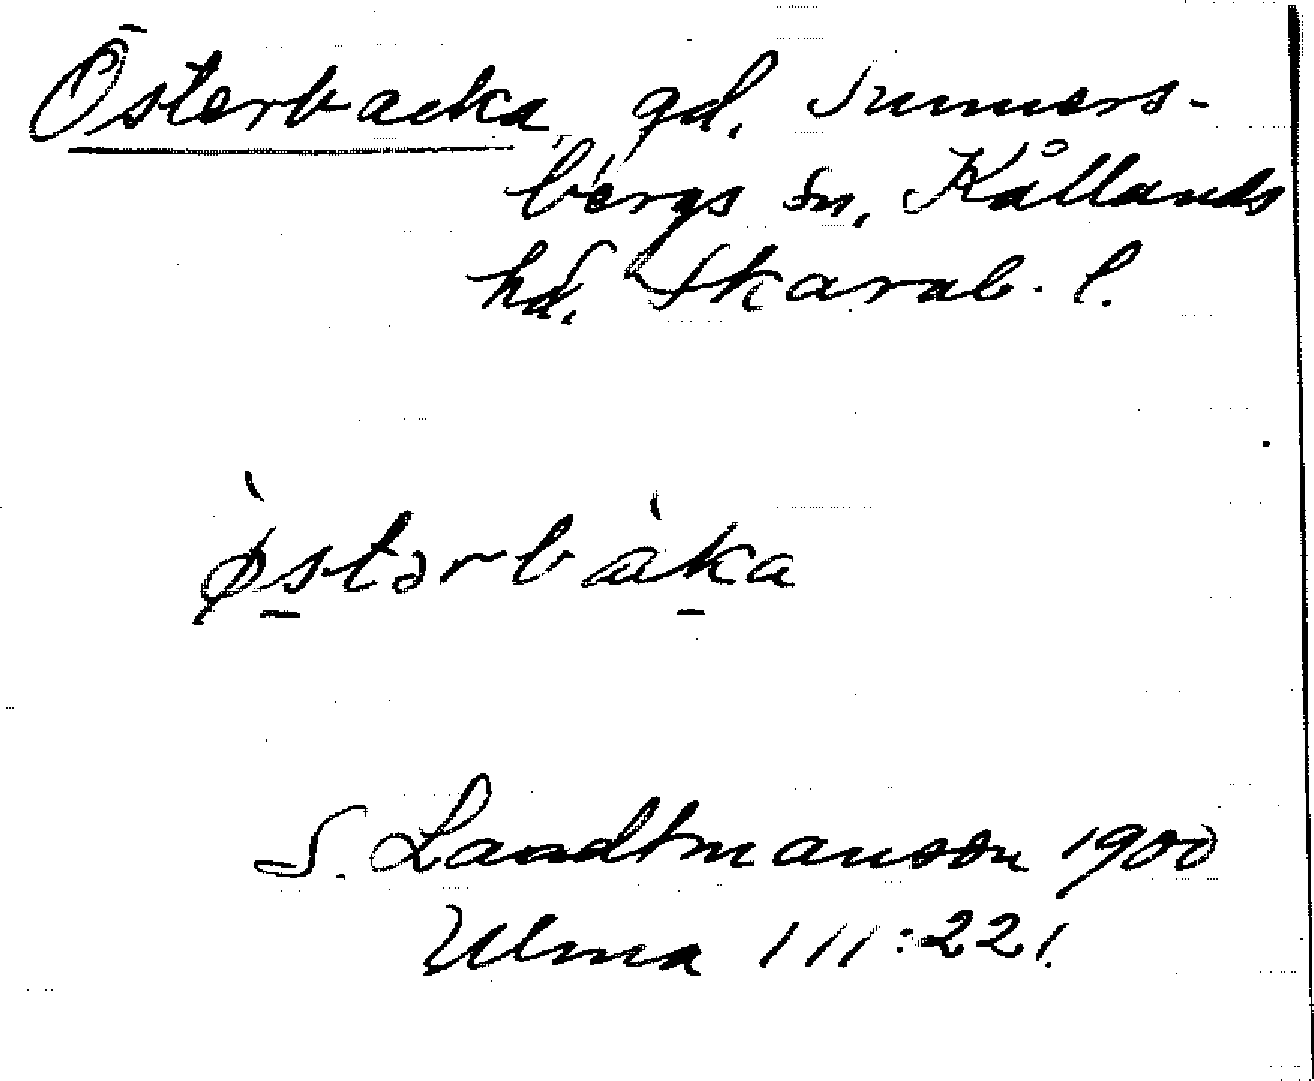 Österbacka, gd. Sunners-
bergs sn, Kållands
hd. Skarab. l.
ø̀stərbàka
S. Landtmanson 1900
Ulma 111:221.